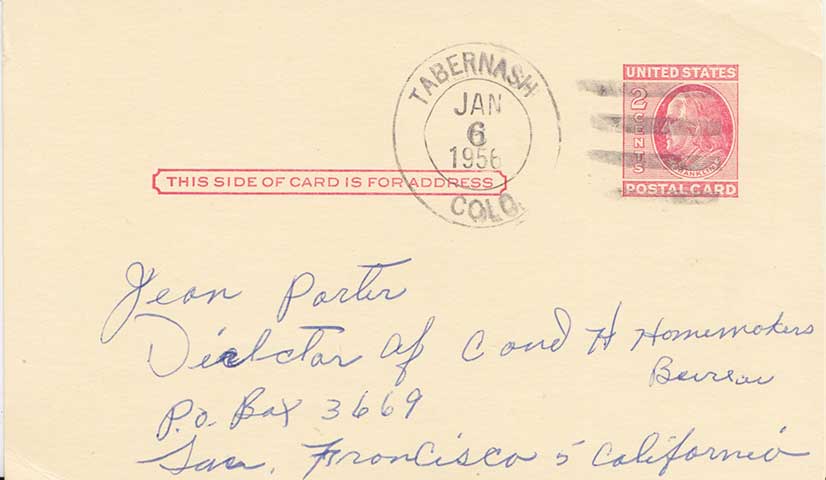 UNITED STATES
2 CENTS
FRANKLIN
POSTAL CARD
TABERNASH
JAN
6
1956
COLO.
THIS SIDE OF CARD IS FOR ADDRESS
Jean Porter
Director of C and H Homemakers
Bureau
P.O. Box 3669
San, Francisco 5 California